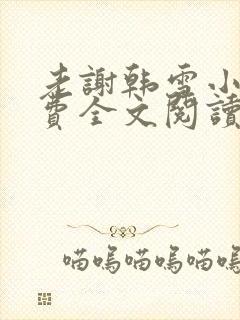 老謝韩雪小
費全文閱讀
喵嗚喵嗚喵嗚